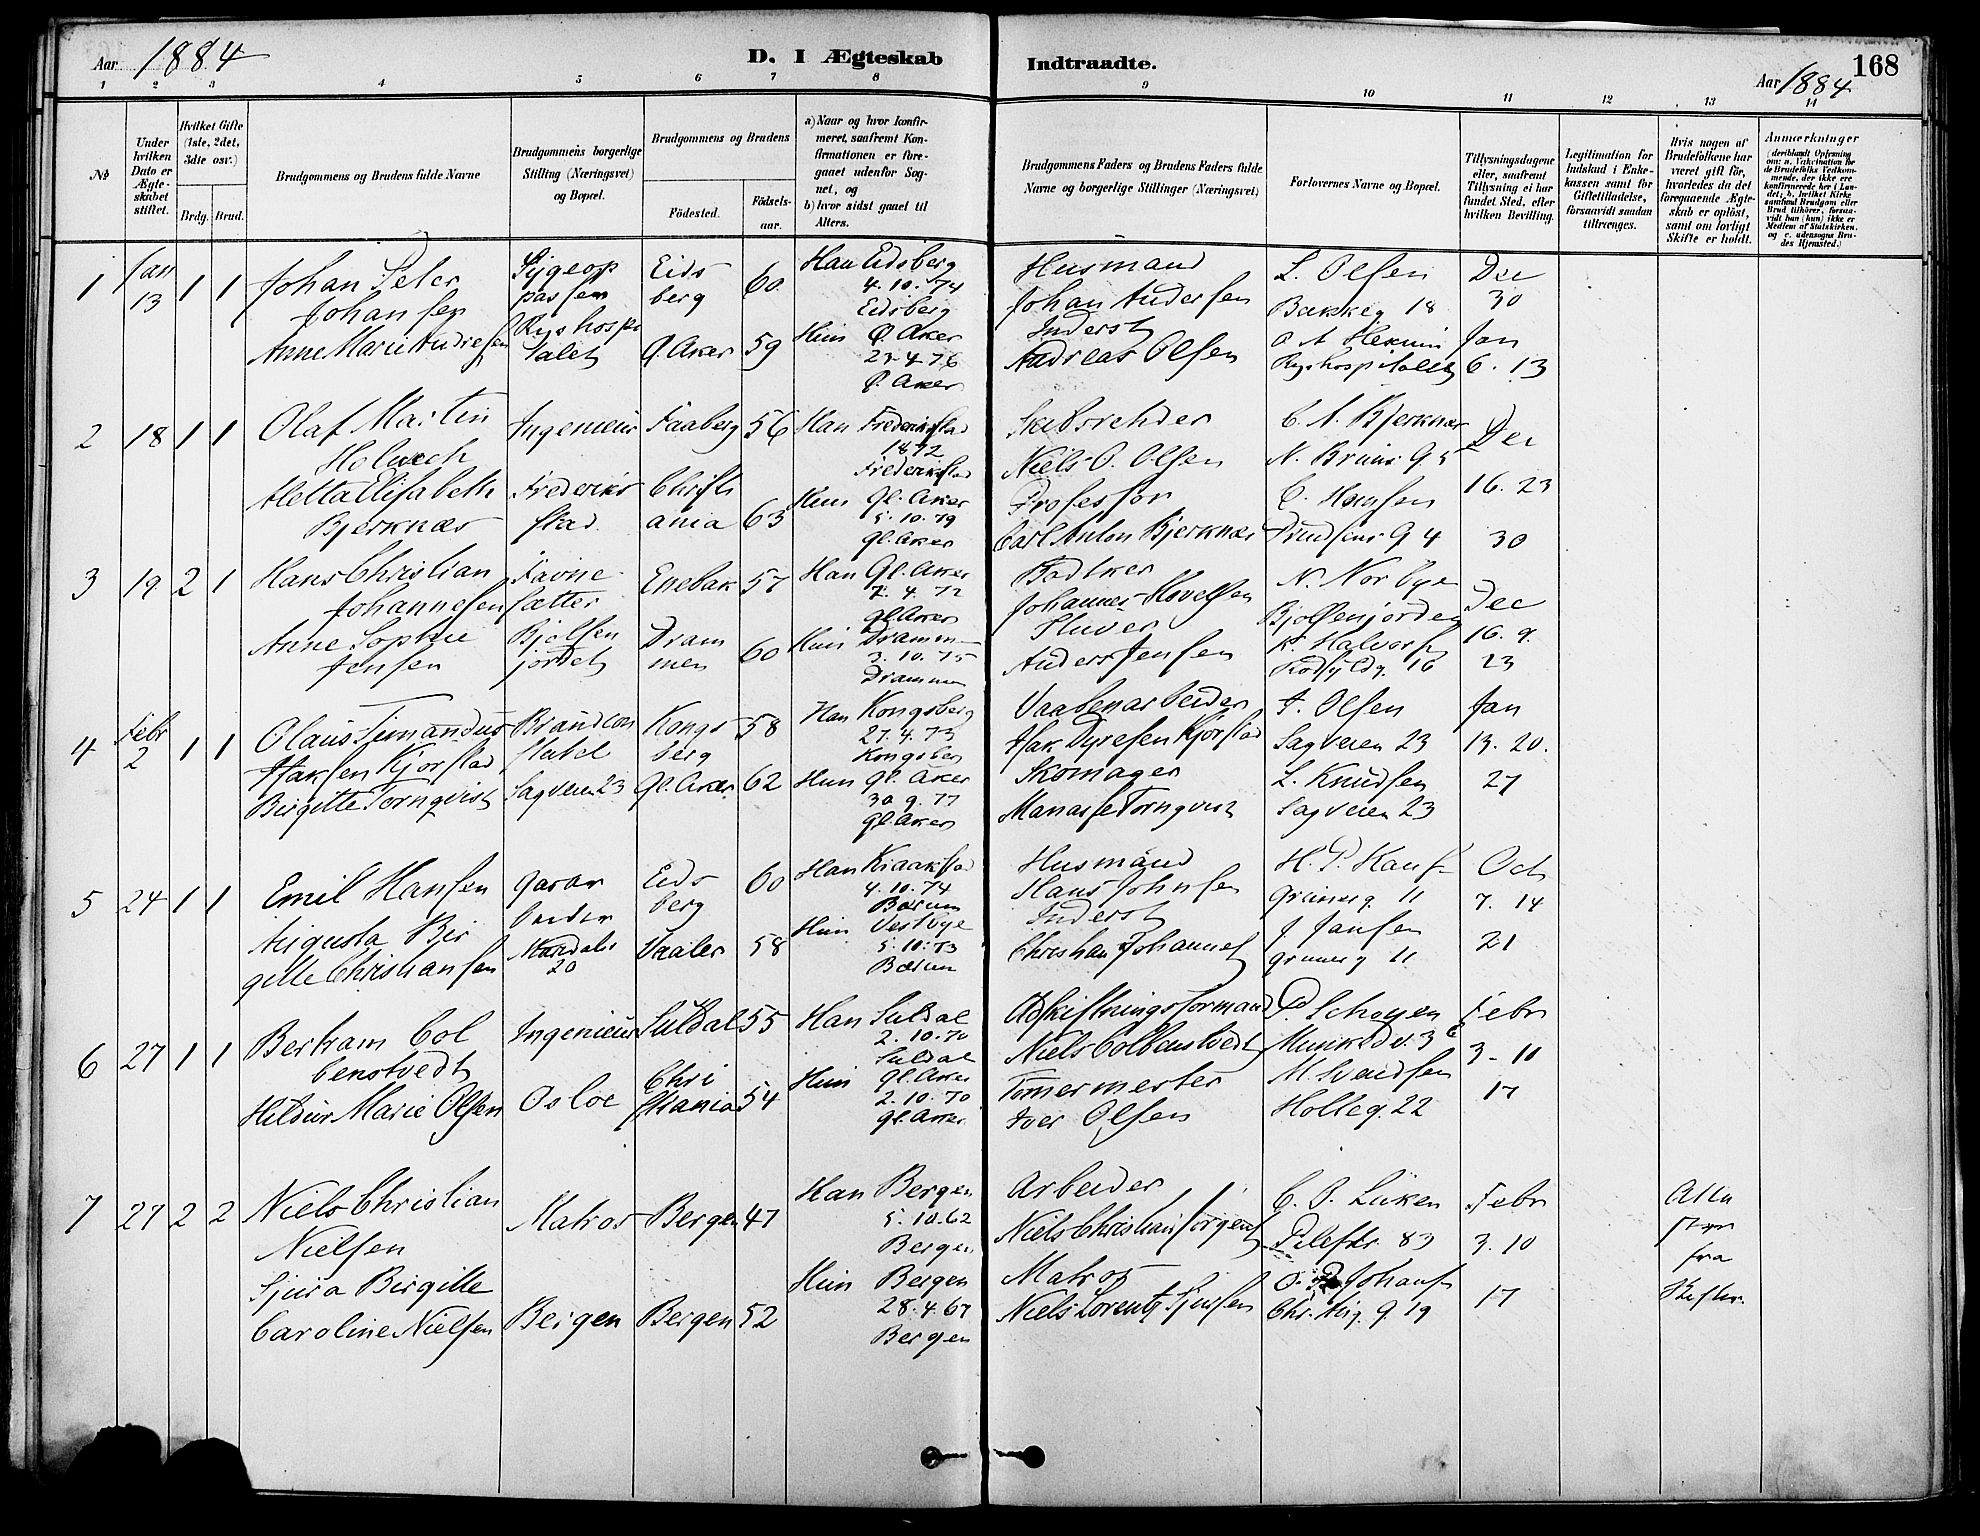 Aar 1884
D. I Ægteskab Indtraadte.
Aar 1884
168
1 2 3 4 5 6 7 8 9 10 11 12 13 14
No
Under hvilken Dato er Ægteskabet stiftet.
Hvilket Gifte (1ste, 2det, 3die osv.)
Brdg. Brud.
Brudgommens og Brudens fulde Navne
Brudgommens borgerlige Stilling (Næringsvei) og Bopæl.
Brudgommens og Brudens
Födested.
Födsels-aar.
a) Naar og hvor konfir-
meret, saafremt Kon-
firmationen er fore-
gaaet udenfor Sog-
net, og
b) hvor sidst gaaet til
Alters.
Brudgommens Faders og Brudens Faders fulde
Navne og borgerlige Stillinger (Næringsvei)
Forlovernes Navne og Bopæl.
Tillysningsdagene
eller, saafremt
Tillysning ei har
fundet Sted, efter
hvilken Bevilling.
Legitimation for
Indskud i Enke-
kassen samt for
Giftetilladelse,
forsaavidt saadan
tiltrænges.
Hvis nogen af
Brudefolkene har
været gift för,
hvorledes da det
foregaaende Ægte-
skab er oplöst,
samt om lovligt
Skifte er holdt.
Anmærkninger
(deriblandt Oplysning
om: a. Vakcination for
de Brudefolks Vedkom-
mende, der ikke ere
konfirmerede her i Lan-
det; b. hvilket Kirke-
samfund Brudgom eller
Brud tilhörer, forsaa-
vidt han (hun) ikke er
Medlem af Statskirken,
og c. udensogns Bru-
des Hjemsted.)
1
Jan
13
1 1
Johan Peter
Johansen
Anne Marie Andresen
Sygeop
passer
Rigshospi
talet
Eids
berg
60
Gl. Aker 59
Han Eidsberg
4. 10. 74
Eidsberg
Hun Gl. Aker
4. 76
Gl. Aker
Husmand
Johan Andersen
Inderst
Andreas Olsen
L. Olsen
Bakkeg 18
Rigshospitalet
Dec
30
Jan
6. 13
2
18
1 1
Olaf Martin
Holwech
Aletta Elisabeth
Bjerknæs
Ingenieur
Frederiks
stad
Faaberg 56
Christi
ania 63
Han Frederikstad
1872
Frederikstad
Hun Gl. Aker
5. 10. 79
Gl. Aker
Skibsrehder
Niels O. Olsen
Professor
Carl Anton Bjerknæs
C. A. Bjerknæs
N. Bruns G 5
C. Hansen
G 4
Dec
16. 23
30
3
19
2 1
Hans Christian
Johannesen
Anne Sophie
Jensen
Favne
sætter
Bjølsen
jordet
Enebak 57
Dram
men 60
Han Gl. Aker
7. 4. 72
Gl. Aker
Hun Drammen
3. 10. 75
Drammen
Bødker
Johannes Hovelsen
Anders Jensen
N. Norbye
Bjølsenjordet
K. Halvorsen
16
Dec
16. 9.
23
4
Febr
2
1 1
Olaus Timandus
Isaksen Kjørstad
Birgitte Tornqvist
Brandcon
stabel
Sagveien 23
Kongs
berg
58
Gl. Aker 62
Han Kongsberg
27. 4. 73
Kongsberg
Hun Gl. Aker
30. 9. 77
Gl. Aker
Vaabenarbeider
Isak Dyresen Kjørstad
Skomager
Manasse Tornqvist
J. Olsen
Sagveien 23
L. Knudsen
Sagveien 23
Jan
13. 20.
27
5
24
1 1
Emil Hansen
Augusta Bir
gitte Christiansen
Garar
beider
20
Eids
berg
60
Vaaler 58
Han Kraakstad
4. 10. 74
Bærum
Hun Vestbye
5. 10. 73
Bærum
Husmand
Hans Johnsen
Inderst
Christian Johannes
H. P. Hans
Grüners g. 11
J. Jansen
Grüners g 11
Oct
7. 14
21
6
27
1 1
Bertram Col
benstvedt
Hildur Marie Olsen
Ingenieur
Osloe
Suldal 55
Chri
stiania 54
Han Suldal
2. 10. 70
Suldal
Hun Gl. Aker
2. 10. 70
Gl. Aker
Udskiftningsformand
Niels Colbenstvedt
Tømermester
Iver Olsen
Schøyen
M. Svendsen
Holteg. 22
Febr
3 - 10
17
7
27
2 2
Niels Christian
Nielsen
Sjura Birgitte
Caroline Nielsen
Matros
Bergen
Bergen 47
Bergen 52
Han Bergen
5. 10. 62
Bergen
Hun Bergen
28. 4. 67
Bergen
Arbeider
Niels Christian Jørgens
Matros
Niels Lorentz
C. P. Lüken
Pilestr. 83
O. Johans
G. 19
Febr
3. 10
17
fra